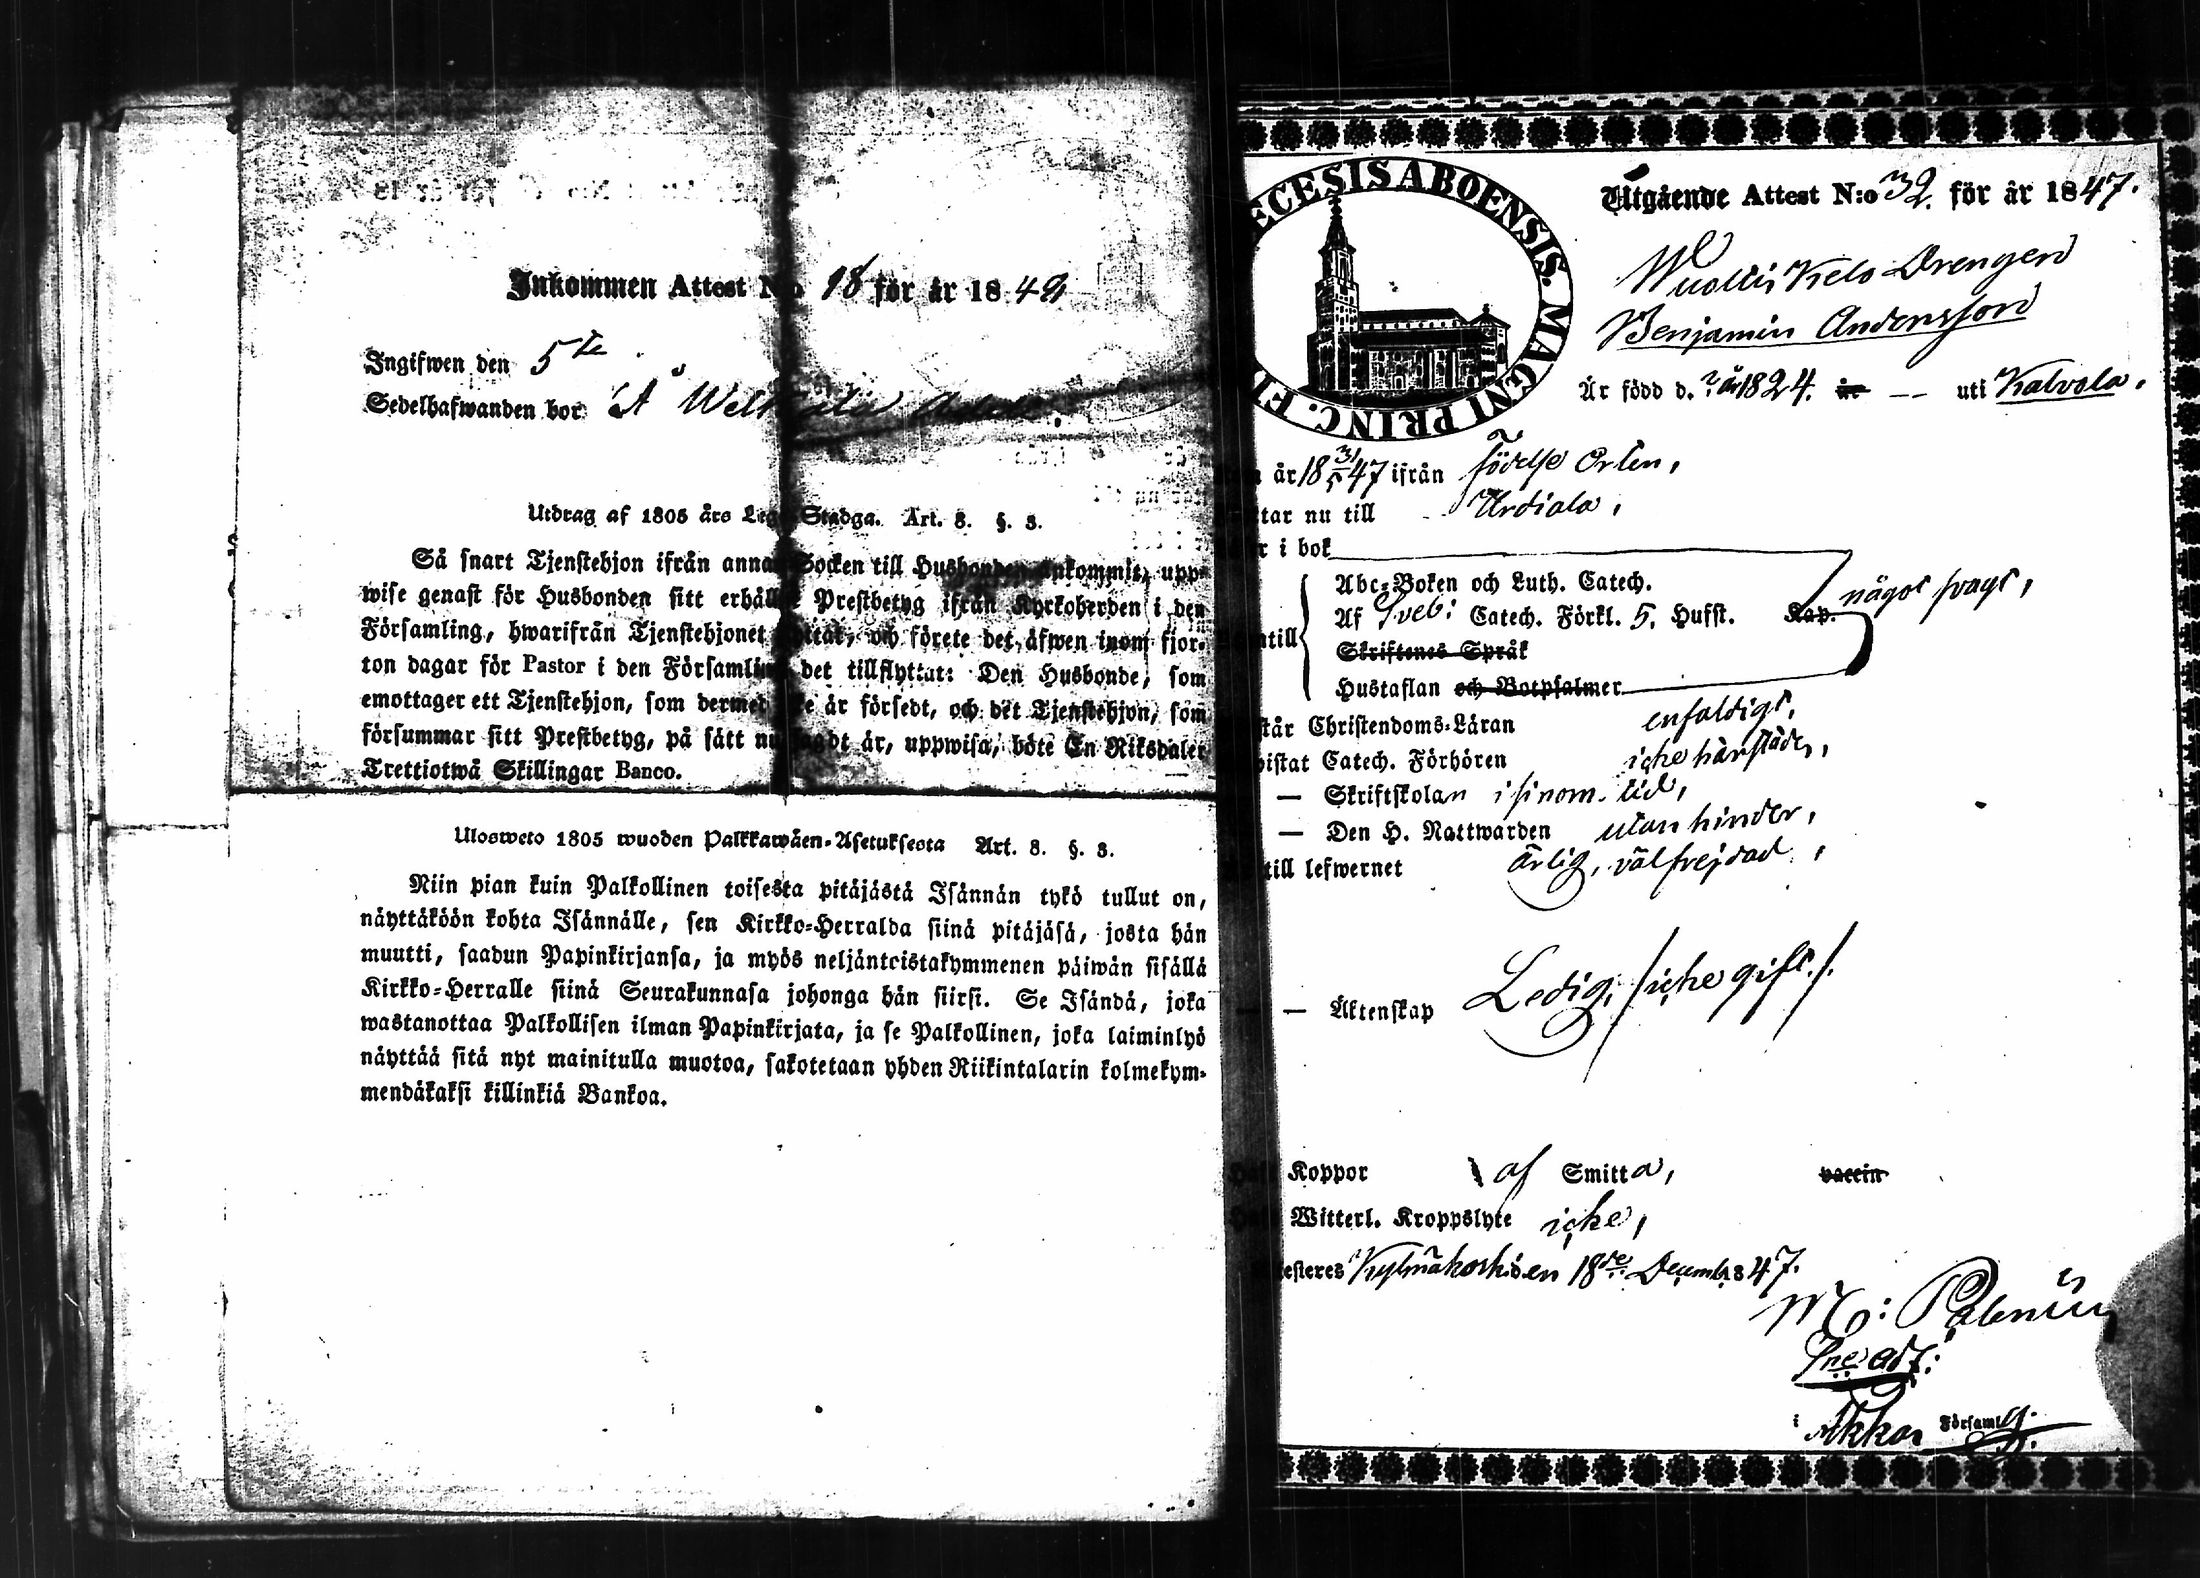 Inkommen Attest N:o 18 för år 1849
Ingifwen den 5te
Sedelhafwanden bor å
Utdrag af 1805 års Lego Stadga. Art. 8. §. 3.
Så snart Tjenstehjon ifrån annan Socken till Husbonden ankommit, upp-
wise genast för Husbonden sitt erhållne Prestbetyg ifrån Kyrkoherden i den
Församling, hwarifrån Tjenstehjonet flyttat, och förete det äfwen inom fjor-
ton dagar för Pastor i den Församling det tillflyttat: Den Husbonde, som
emottager ett Tjenstehjon, som dermed icke är försedt, och det Tjenstehjon, som
försummar sitt Prestbetyg, på sätt nu sagdt är, uppwisa, böte En Riksdaler
Trettiotwå Skillingar Banco.
Ulosweto 1805 wuoden Palkkawäen-Asetuksesta Art. 8. §. 3.
Niin pian kuin Palkollinen toisesta pitäjästä Isännän tykö tullut on,
näyttäköön kohta Isännälle, sen Kirkko-Herralda siinä pitäjäsä, josta hän
muutti, saadun Papinkirjansa, ja myös neljäntoistakymmenen päiwän sisällä
Kirkko-Herralle siinä Seurakunnasa johonga hän siirsi. Se Isändä, joka
wastanottaa Palkollisen ilman Papinkirjata, ja se Palkollinen, joka laiminlyö
näyttää sitä nyt mainitulla muotoa, sakotetaan yhden Riikintalarin kolmekym-
mendäkaksi killinkiä Bankoa.
ECESIS ABOENSIS. MAGNI PRINC. FI
Utgående Attest N:o 32 för år 1847.
Drengen
Benjamin Andersson
Är född d. ? år 1824. år — uti Kalvola.
år 18 31/5 47 ifrån födelse Orten,
tar nu till Urdiala,
r i bok
Abc-Boken och Luth. Catech.
något svagt,
Af Sveb: Catech. Förkl. 5. Hufst. Kap.
ntill
Skriftenes Språk
Hustaflan och Botpsalmer
står Christendoms-Läran enfaldigt,
bistat Catech. Förhören icke härstädes,
— Skriftskolan i sinom tid,
— Den H. Nattwarden utan hinder,
till lefwernet ärlig, välfrejdad,
— — Äktenskap Ledig, /:icke gift:/.
Haft Koppor af Smitta, vaccin
Witterl. Kroppslyte icke,
testeres Kylmäkoski den 18de Decemb. 1847.
i Akkas Församl.